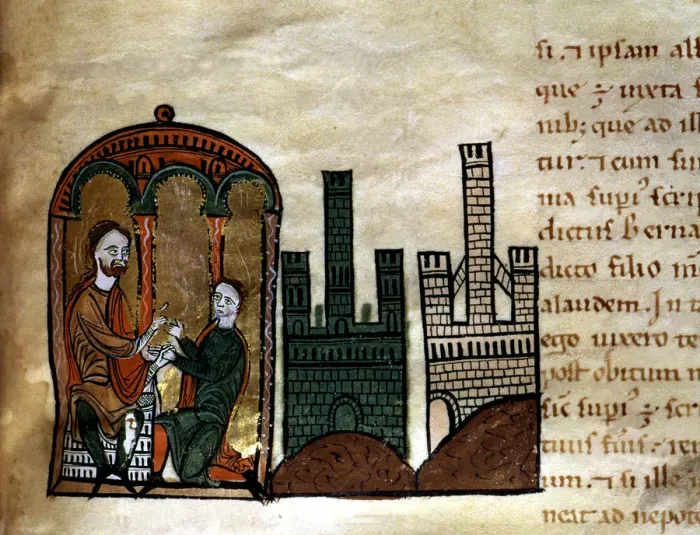 si. ⁊ ipsam
que ÷ iuxta
nib; que ad ill
tur. ⁊ cum
ma supi᷒ scrip
dictus berna
dicto filio
alaudem. In
ego uixero te
post obitum
sic supi᷒ ÷ scr
tuus
um. ⁊ si ille
neat ad nepote